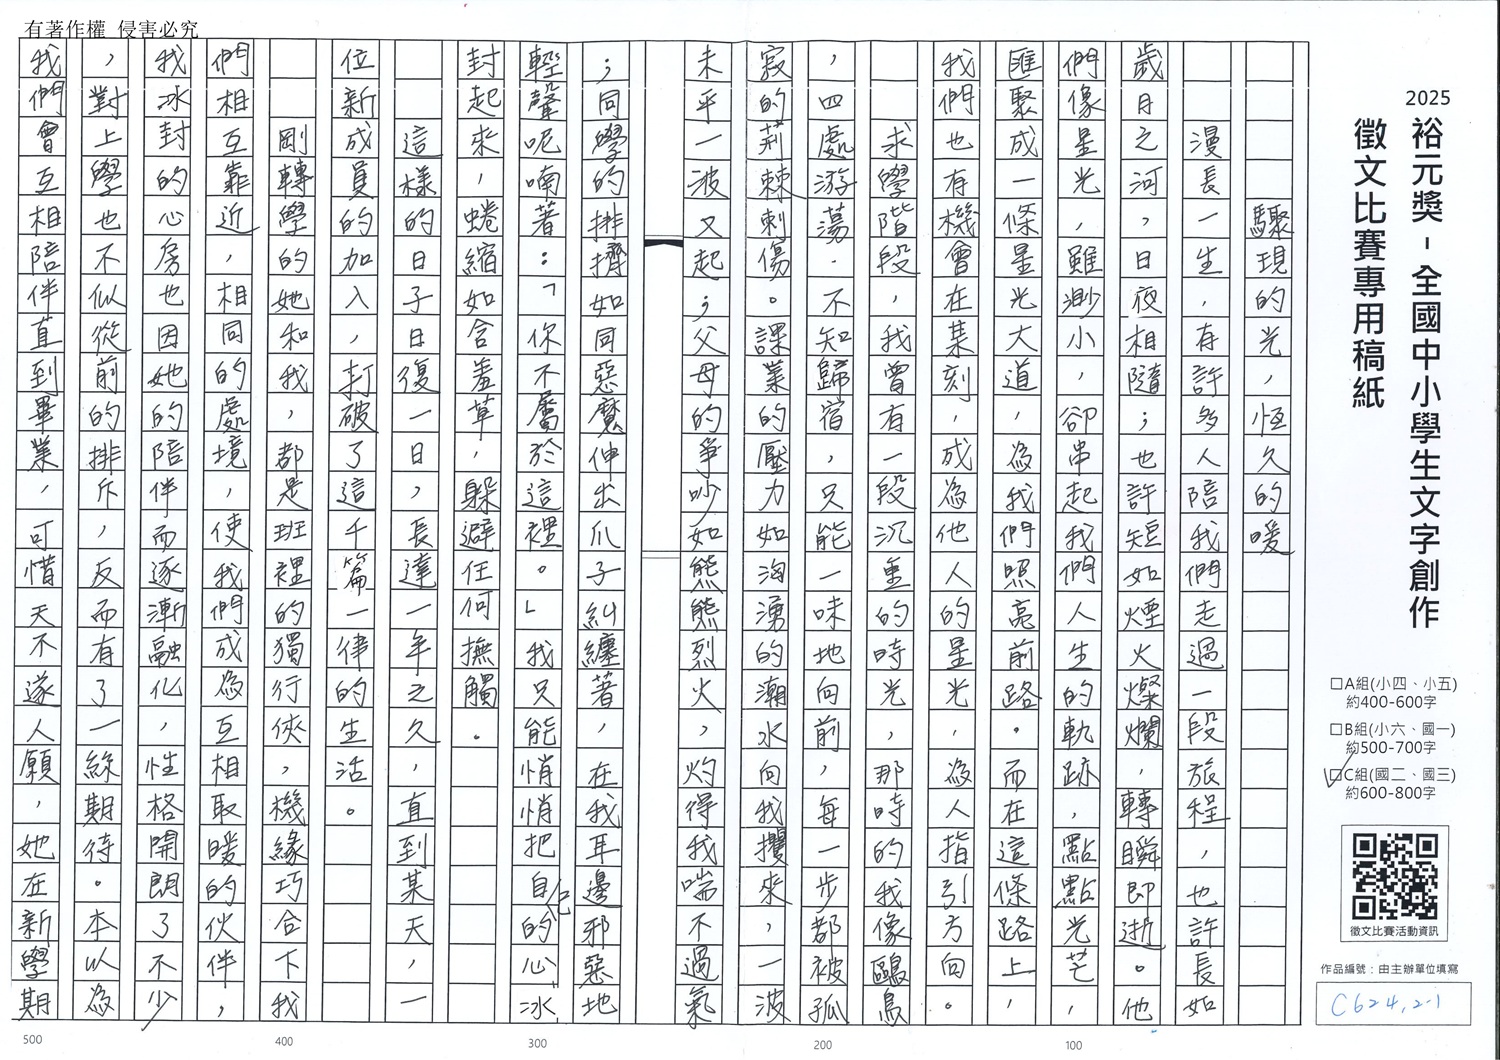 有著作權 侵害必究
2025
裕元獎-全國中小學生文字創作
徵文比賽專用稿紙
□A組(小四、小五)
約400-600字
□B組(小六、國一)
約500-700字
☑C組(國二、國三)
約600-800字
徵文比賽活動資訊
作品編號：由主辦單位填寫
C624,2-1
驟現的光，恆久的暖
漫長一生，有許多人陪我們走過一段旅程，也許長如
歲月之河，日夜相隨；也許短如煙火燦爛，轉瞬即逝。他
們像星光，雖渺小，卻串起我們人生的軌跡，點點光芒，
匯聚成一條星光大道，為我們照亮前路。而在這條路上，
我們也有機會在某刻，成為他人的星光，為人指引方向。
求學階段，我曾有一段沉重的時光，那時的我像鷗鳥
，四處游蕩，不知歸宿，只能一味地向前，每一步都被孤
寂的荊棘刺傷。課業的壓力如洶湧的潮水向我攫來，一波
未平一波又起；父母的爭吵如熊熊烈火，灼得我喘不過氣
；同學的排擠如同惡魔伸出爪子糾纏著，在我耳邊邪惡地
輕聲呢喃著：「你不屬於這裡。」我只能悄悄把自己的心冰
封起來，蜷縮如含羞草，躲避任何撫觸。
這樣的日子日復一日，長達一年之久，直到某天，一
位新成員的加入，打破了這千篇一律的生活。
剛轉學的她和我，都是班裡的獨行俠，機緣巧合下，我
們相互靠近，相同的處境，使我們成為互相取暖的伙伴，
我冰封的心房也因她的陪伴而逐漸融化，性格開朗了不少
，對上學也不似從前的排斥，反而有了一絲期待。本以為
我們會互相陪伴直到畢業，可惜天不遂人願，她在新學期
100
200
300
400
500